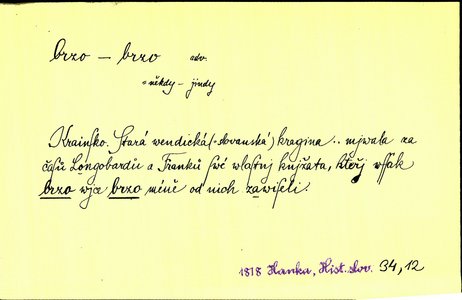 brzo – brzo adv.
= někdy – jindy
Krainsko. Stará wendická (= slovanská) kragina .. mjwala za
časů Longobardů a Franků swé wlastnj knjžata, kteřj wšak
brzo wjce brzo méně od nich zawiseli.
1818 Hanka, Hist. slov. 34,12